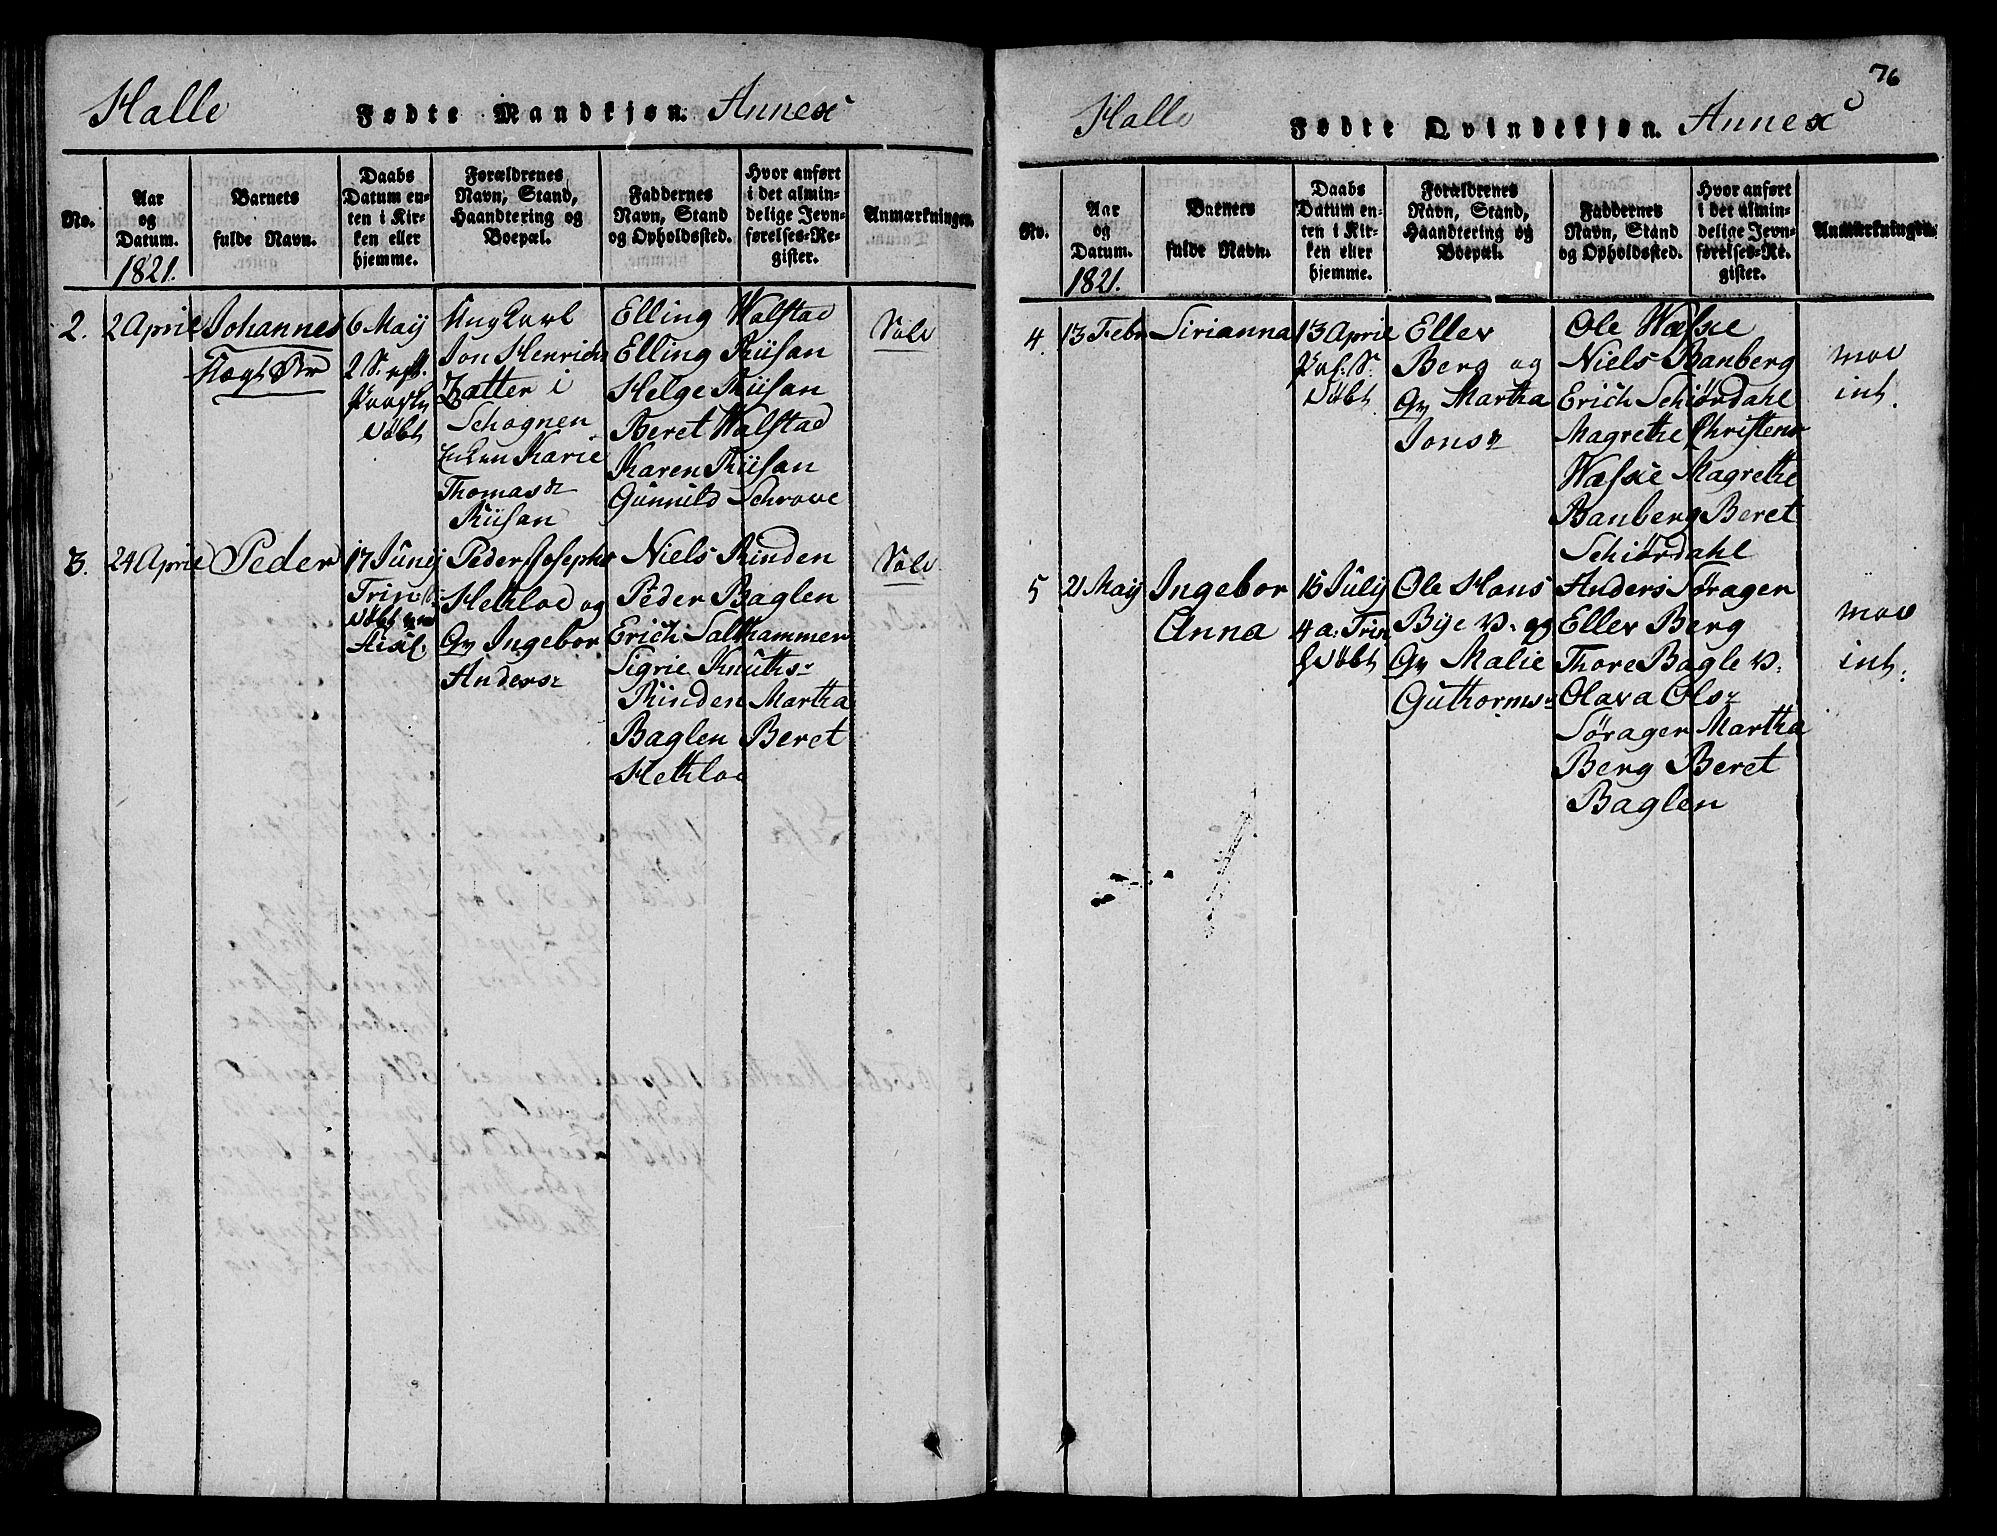 Halle Fødte Mandkjøn. Annex
No.
Aar og Datum. 1821.
Barnets fulde Navn.
Daabs Datum enten i Kirken eller hjemme.
Forældrenes Navn, Stand, Haandtering og Boepæl.
Faddernes Navn, Stand og Opholdssted.
Hvor anført i det almindelige Jevnførelses-Register.
Anmærkninger.
2.
2 April
Johannes
6 May
2 S.
Døbt
Ungkarl
Jon Henrichs
Zætter i
Schognen
Karie
Thomasdr
Riisan
Elling Walstad
Elling Riisan
Helge Riisan
Beret Walstad
Karen Riisan
Gunnild Schrove
3.
24 April
Peder
17 Juny
Trin
Døbt
Peder Josephs
Hetloe og
Qv Ingebor
Andersdr
Niels Rinden
Peder Baglen
Erich Salthammer
Sigrie Knuths
Rinden Martha
Baglen Beret
Hetloe
76
Halle Fødte Qvindekjøn. Annex
No.
Aar og Datum. 1821.
Barnets fulde Navn.
Daabs Datum enten i Kirken eller hjemme.
Forældrenes Navn, Stand, Haandtering og Boepæl.
Faddernes Navn, Stand og Opholdssted.
Hvor anført i det almindelige Jevnførelses-Register.
Anmærkninger.
4.
13 Febr
Sirianna
13 April
Døbt
Eller
Berg og
Qv Martha
Jonsdr
Ole
Niels Banberg
Erich Schiørdahl
Magrethe Christens
Magrethe
Banberg Beret
Schiørdahl
int.
5
21 May
Ingebor
Anna
15 July
4 a: Trin
Døbt
Ole Hans
Bye og
Qv Malie
Guthorms
Anders Sørager
Eller Berg
Thore Bagle
Olava Ols
Sørager Martha
Berg Beret
Baglen
int.